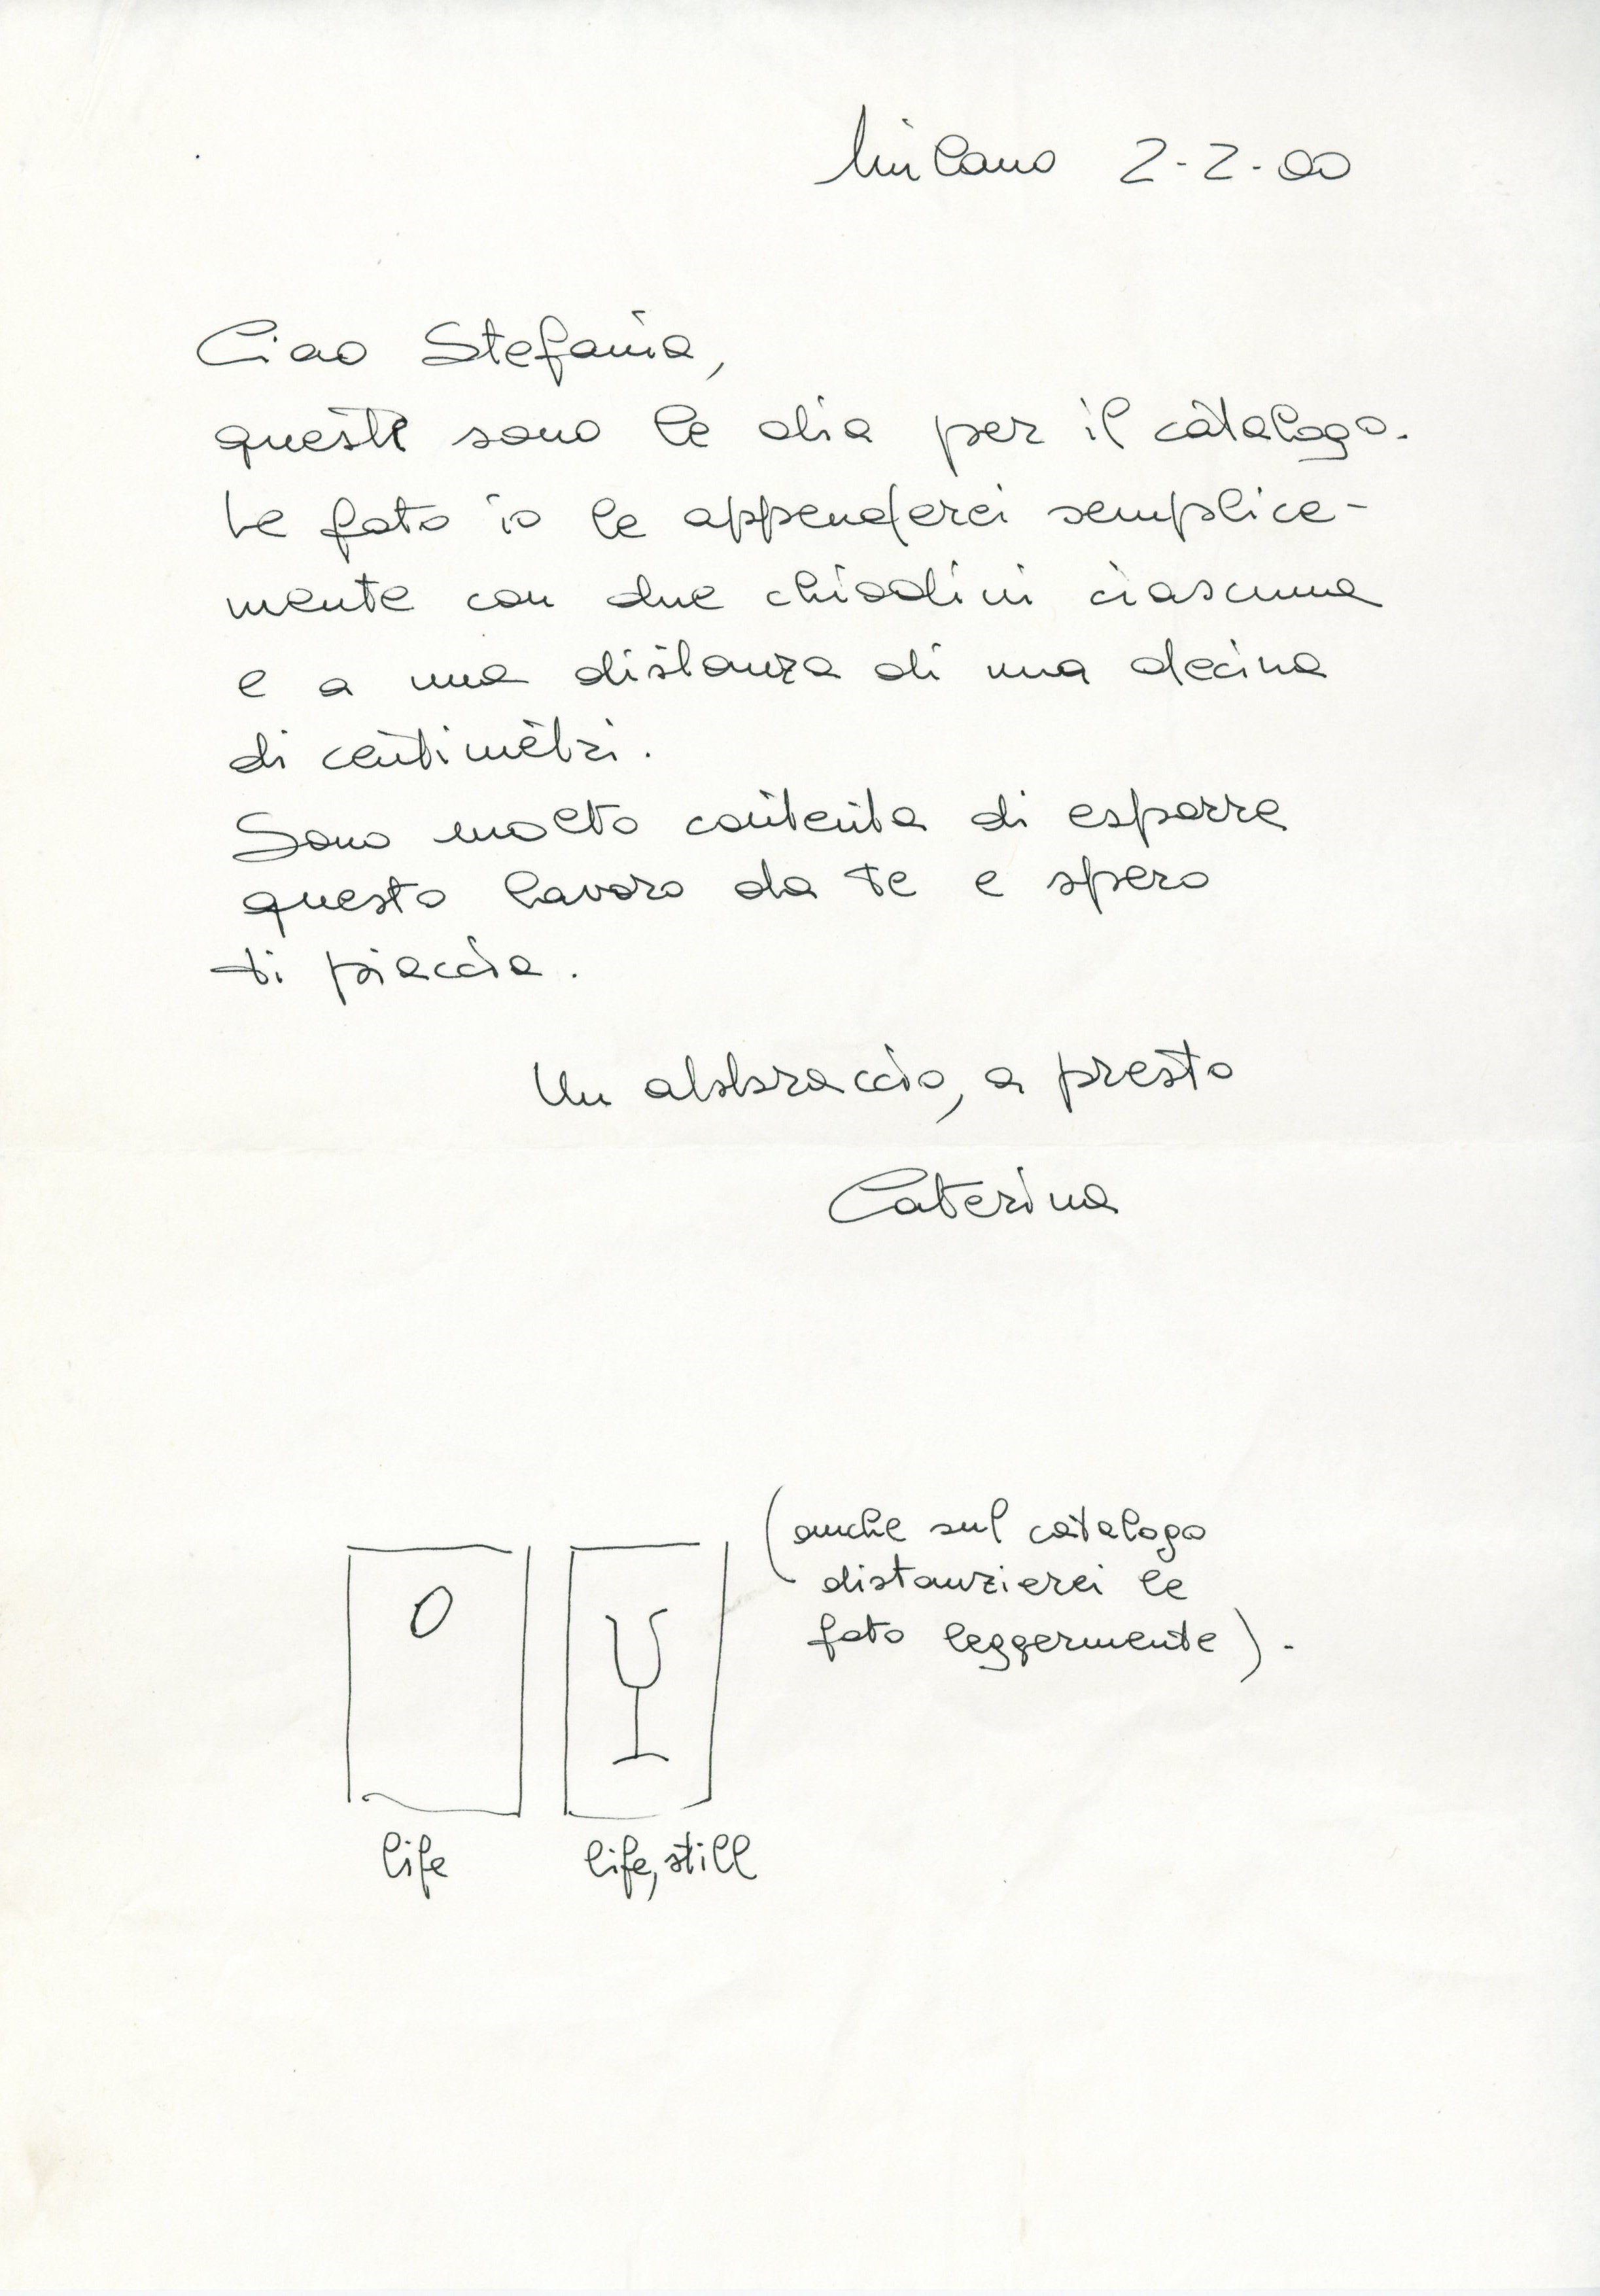 Milano 2-2-00
Ciao Stefania,
queste sono le dia per il catalogo.
Le foto io le appenderei semplice-
mente con due chiodini ciascuna
e a una distanza di una decina
di centimetri.
Sono molto contenta di esporre
questo lavoro da te e spero
ti piaccia.
Un abbraccio, a presto
Caterina
(anche sul catalogo
distanzierei le
foto leggermente).
life
life, still